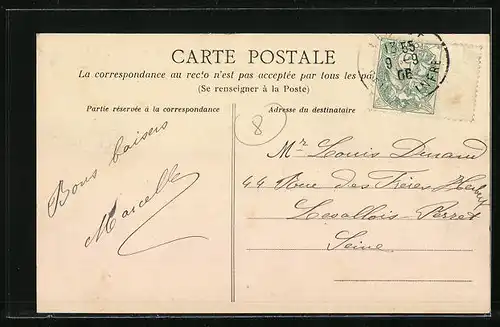 CARTE POSTALE
La correspondance au recto n'est pas acceptée par tous les pa
(Se renseigner à la Poste)
Partie réservée à la correspondance
Adresse du destinataire
13 55
9 - 9
06
8
Bons baisers
Marcelle
Mr Louis
44 Rue des Frères Herbert
Levallois-Perret
Seine